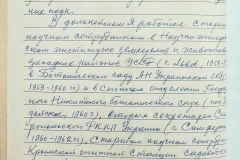 ных наук.
В дальнейшем я работал старшим
научным сотрудником в Научно-исследо
ском институте земледелия и животново
западных районов УССР (г. Львов, 1957-
в Ботаническом саду АН Украинской ССР
1959-1960 г.) и в Степном отделении Госуд
ного Никитского ботанического сада (
1960 г.), вторым секретарем С
РК КП Украины (г. Симферо
(1960-1962 г.). Старшим научным сотр
Крымской опытной станции садовод